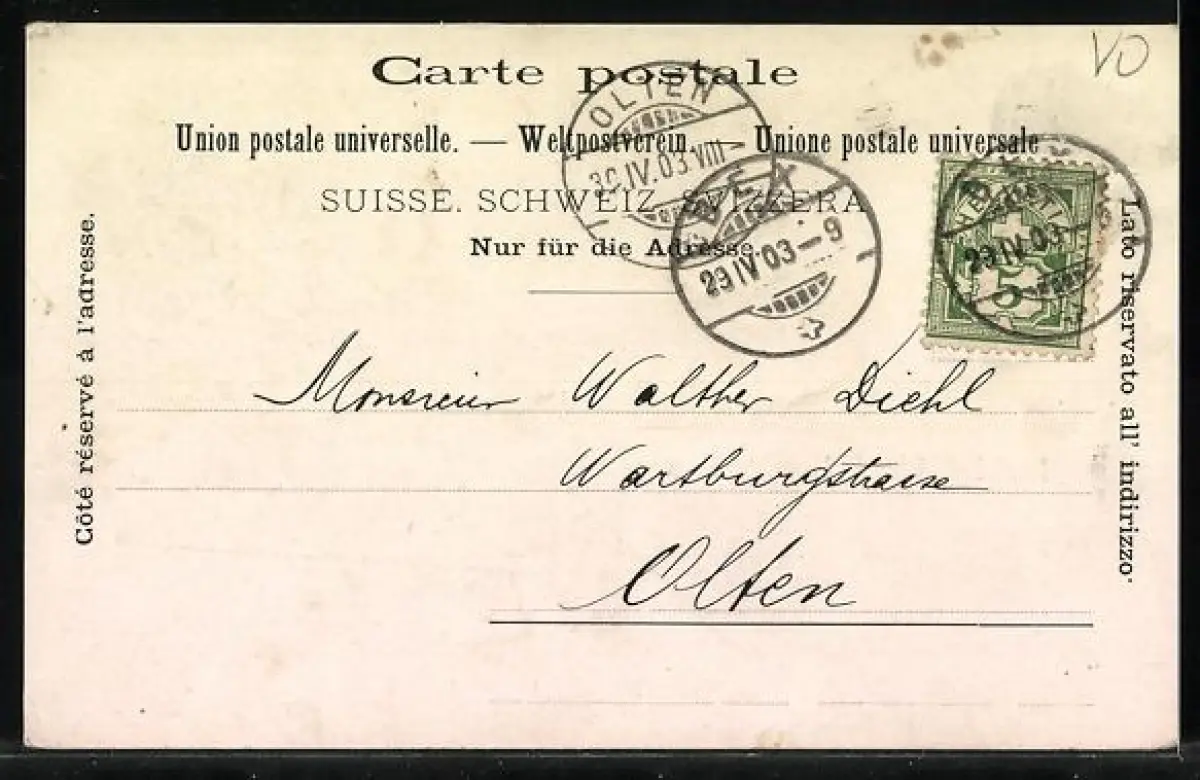 VD
Carte postale
Union postale universelle. — Weltpostverein. — Unione postale universale
SUISSE. SCHWEIZ. SVIZZERA
Nur für die Adresse.
OLTEN
30.IV.03.VIII
BEX
29 IV 03 – 9
29 IV 03
5
Côté réservé à l'adresse.
Lato riservato all' indirizzo.
Monsieur Walther Diehl
Wartburgstrasse
Olten